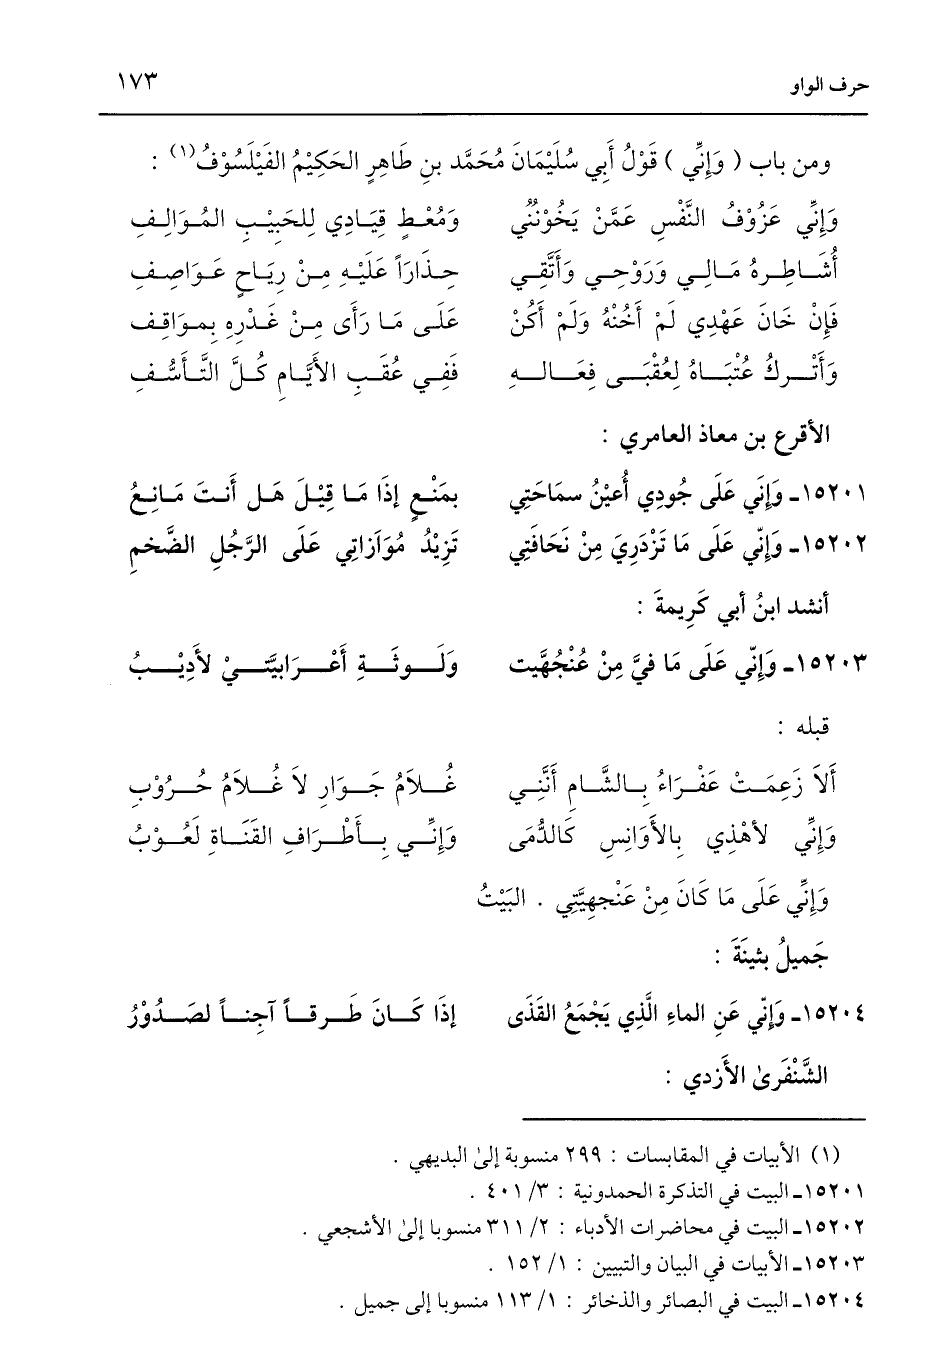 حرف الواو ١٧٣
ومن باب ( وَإِنِّي ) قَوْلُ أَبِي سُلَيْمَانَ مُحَمَّد بنِ طَاهِرٍ الحَكِيْمُ الفَيْلَسُوْفُ(١) :
وَإِنِّي عَزُوْفُ النَّفْسِ عَمَّنْ يَخُوْنُنِي وَمُعْـطٍ قِيَـادِي لِلحَبِيْـبِ المُـوَالِـفِ
أُشَـاطِـرهُ مَـالِـي وَرَوْحِـي وَأَتَّقِـي حِـذَارَاً عَلَيْـهِ مِـنْ رِيَـاحٍ عَـوَاصِـفِ
فَإِنْ خَانَ عَهْدِي لَمْ أَخُنْهُ وَلَم أَكُنْ عَلَـى مَـا رَأَى مِـنْ غَـدْرِهِ بِمـوَاقِـفِ
وَأَتْــركُ عُتْبَــاهُ لِعُقْبَــى فِعَــالــهِ فَفِـي عُقَـبِ الأَيَّـامِ كُـلَّ التَّـأَسُّـفِ
الأقرع بن معاذ العامري :
١٥٢٠١ـ وَإِنِّي عَلَى جُودِي أُعيْنُ سمَاحَتِي بِمَنْـعٍ إِذَا مَـا قِيْـلَ هَـل أَنـتَ مَـانِـعُ
١٥٢٠٢ـ وَإِنّي عَلَى مَا تَزْدَرِيَ مِنْ نَحَافَتِي تَزِيْدُ مُوَازَاتِي عَلَى الرَّجُلِ الضَّخمِ
أنشد ابنُ أبي كَرِيمةَ :
١٥٢٠٣ـ وَإِنّي عَلَى مَا فيَّ مِنْ عُنْجُهَيَّت وَلَــوثَــةِ أَعْــرَابيَّتــيْ لأَدِيْــبُ
قبله :
أَلاَ زَعِمَـتْ عَفْـرَاءُ بِـالشَّـامِ أَنَّنِـي غُـلاَمُ جَـوَارٍ لاَ غُـلاَمُ حُـرُوْبِ
وَإِنِّي لأهْذِي بِالأَوَانِسِ كَالدُّمَى وَإِنِّـي بِـأَطْـرَافِ القَنَـاةِ لَعُـوْبُ
وَإِنِّي عَلَى مَا كَانَ مِنْ عَنْجهِيَّتِي . البَيْتُ
جَمِيلُ بثينَةَ :
١٥٢٠٤ـ وَإِنّي عَنِ الماءِ الَّذِي يَجْمَعُ القَذَى إِذَا كَـانَ طَـرقـاً آجِنـاً لصَـدُوْرُ
الشَّنْفَرىٰ الأَزدي :
(١) الأبيات في المقابسات : ٢٩٩ منسوبة إلىٰ البديهي .
١٥٢٠١ـ البيت في التذكرة الحمدونية : ٣/ ٤٠١ .
١٥٢٠٢ـ البيت في محاضرات الأدباء : ٢/ ٣١١ منسوبا إلىٰ الأشجعي .
١٥٢٠٣ـ الأبيات في البيان والتبيين : ١/ ١٥٢ .
١٥٢٠٤ـ البيت في البصائر والذخائر : ١/ ١١٣ منسوبا إلى جميل .